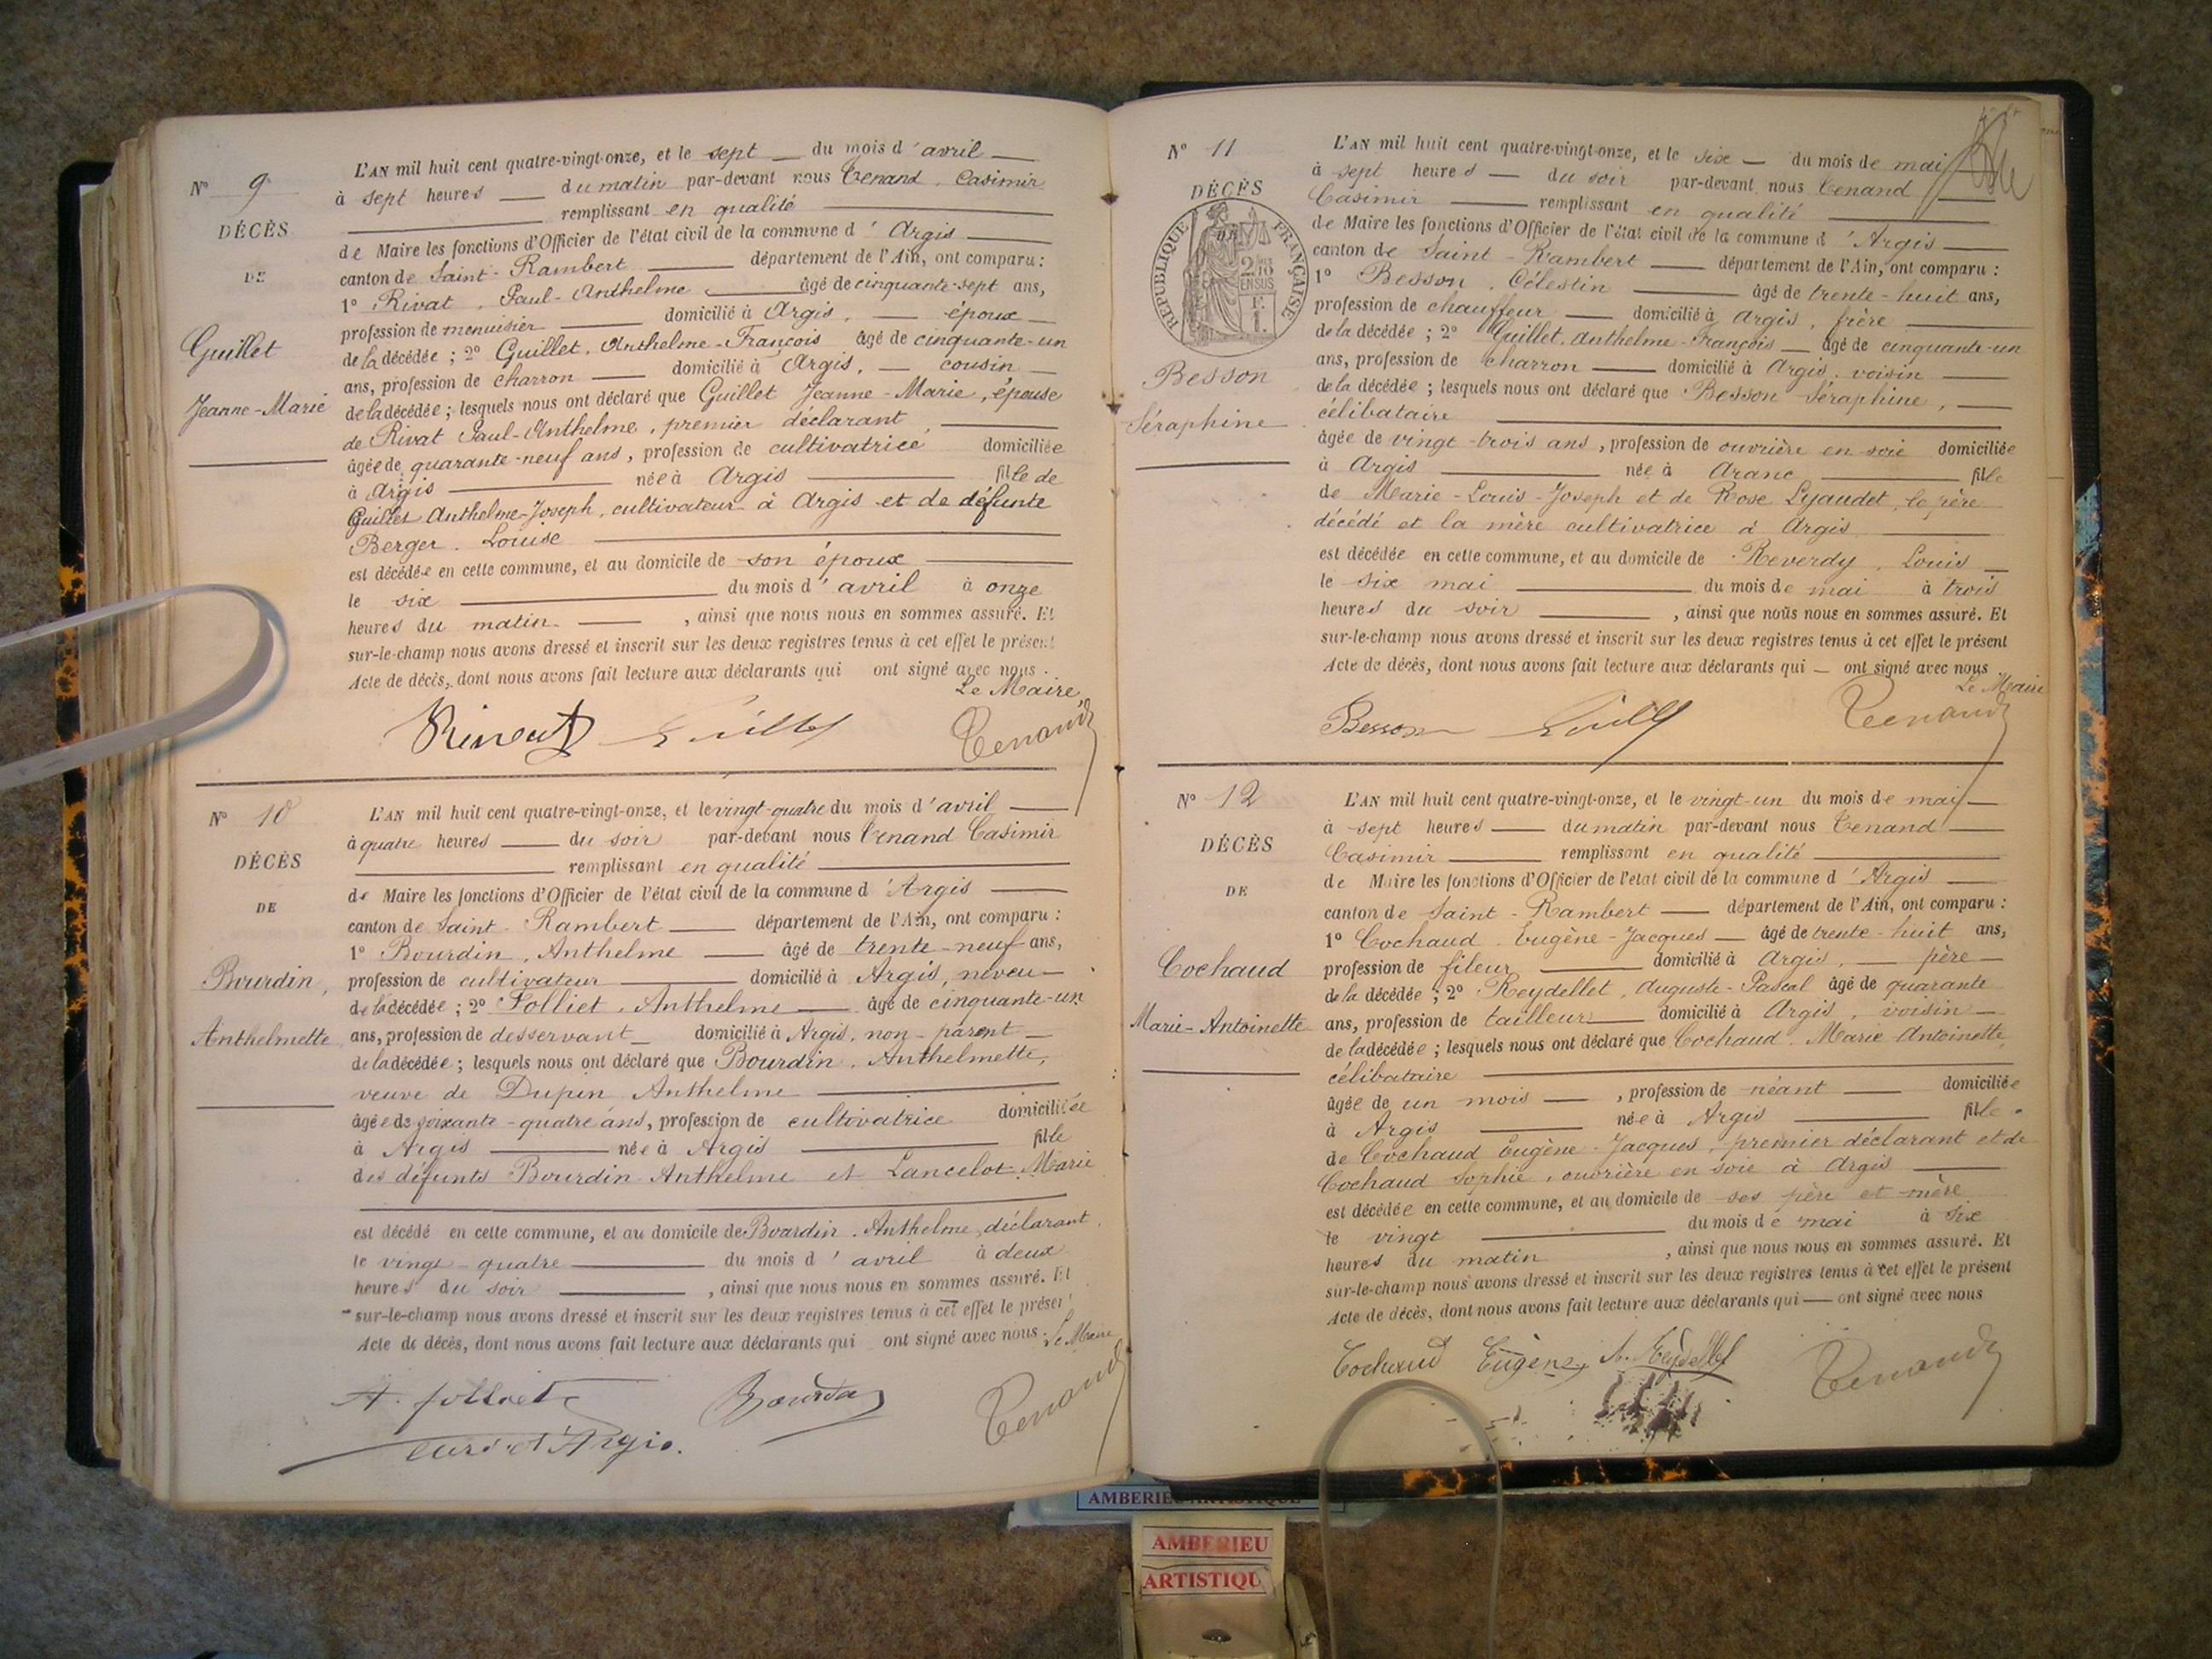 N° 9
DÉCÈS
DE
Guillet
Jeanne-Marie
L'AN mil huit cent quatre-vingt-onze, et le sept du mois d'avril
à sept heures du matin par-devant nous Tenand, Casimir
remplissant en qualité
de Maire les fonctions d'Officier de l'état civil de la commune d'Argis
canton de Saint-Rambert département de l'Ain, ont comparu :
1° Rivat, Paul-Anthelme, âgé de cinquante-sept ans,
profession de menuisier domicilié à Argis, époux
de la décédée ; 2° Guillet, Anthelme-François âgé de cinquante-un
ans, profession de charron domicilié à Argis, cousin
de la décédée ; lesquels nous ont déclaré que Guillet Jeanne-Marie, épouse
de Rivat Paul-Anthelme, premier déclarant,
âgée de quarante-neuf ans, profession de cultivatrice domiciliée
à Argis née à Argis fille de
Guillet Anthelme-Joseph, cultivateur à Argis et de défunte
Berger, Louise
est décédée en cette commune, et au domicile de son époux
le six du mois d'avril à onze
heures du matin, ainsi que nous nous en sommes assuré. Et
sur-le-champ nous avons dressé et inscrit sur les deux registres tenus à cet effet le présent
Acte de décès, dont nous avons fait lecture aux déclarants qui ont signé avec nous.
Le Maire
Guillet Tenand
N° 10
DÉCÈS
DE
Bourdin,
Anthelmette
L'AN mil huit cent quatre-vingt-onze, et le vingt-quatre du mois d'avril
à quatre heures du soir par-devant nous Tenand Casimir
remplissant en qualité
de Maire les fonctions d'Officier de l'état civil de la commune d'Argis
canton de Saint-Rambert département de l'Ain, ont comparu :
1° Bourdin, Anthelme âgé de trente-neuf ans,
profession de cultivateur domicilié à Argis, neveu
de la décédée ; 2° Folliet, Anthelme âgé de cinquante-un
ans, profession de desservant domicilié à Argis, non-parent
de la décédée ; lesquels nous ont déclaré que Bourdin, Anthelmette,
veuve de Dupin Anthelme
âgée de soixante-quatre ans, profession de cultivatrice domiciliée
à Argis née à Argis fille
des défunts Bourdin Anthelme et Lancelot Marie
est décédé en cette commune, et au domicile de Bourdin, Anthelme, déclarant,
le vingt-quatre du mois d'avril à deux
heures du soir, ainsi que nous nous en sommes assuré. Et
sur-le-champ nous avons dressé et inscrit sur les deux registres tenus à cet effet le présent
Acte de décès, dont nous avons fait lecture aux déclarants qui ont signé avec nous. Le Maire
A. folliet Bourdin Tenand
curé d'Argis.
N° 11
DÉCÈS
RÉPUBLIQUE FRANÇAISE
2/10
EN SUS
F.
1.
Besson
Séraphine
L'AN mil huit cent quatre-vingt-onze, et le six du mois de mai
à sept heures du soir par-devant nous Tenand
Casimir remplissant en qualité
de Maire les fonctions d'Officier de l'état civil de la commune d'Argis
canton de Saint-Rambert département de l'Ain, ont comparu :
1° Besson, Célestin âgé de trente-huit ans,
profession de chauffeur domicilié à Argis, frère
de la décédée ; 2° Guillet, Anthelme-François âgé de cinquante-un
ans, profession de charron domicilié à Argis, voisin
de la décédée ; lesquels nous ont déclaré que Besson Séraphine,
célibataire
âgée de vingt-trois ans, profession de ouvrière en soie domiciliée
à Argis née à Aranc fille
de Marie-Louis-Joseph et de Rose Lyaudet, le père
décédé et la mère cultivatrice à Argis
est décédée en cette commune, et au domicile de Reverdy, Louis
le six mai du mois de mai à trois
heures du soir, ainsi que nous nous en sommes assuré. Et
sur-le-champ nous avons dressé et inscrit sur les deux registres tenus à cet effet le présent
Acte de décès, dont nous avons fait lecture aux déclarants qui ont signé avec nous.
Le Maire
Besson Guillet Tenand
N° 12
DÉCÈS
DE
Cochaud
Marie-Antoinette
L'AN mil huit cent quatre-vingt-onze, et le vingt-un du mois de mai
à sept heures du matin par-devant nous Tenand
Casimir remplissant en qualité
de Maire les fonctions d'Officier de l'état civil de la commune d'Argis
canton de Saint-Rambert département de l'Ain, ont comparu :
1° Cochaud, Eugène-Jacques âgé de trente-huit ans,
profession de fileur domicilié à Argis, père
de la décédée ; 2° Reydellet, Auguste-Pascal âgé de quarante
ans, profession de tailleur domicilié à Argis, voisin
de la décédée ; lesquels nous ont déclaré que Cochaud, Marie Antoinette
célibataire
âgée de un mois, profession de néant domiciliée
à Argis née à Argis fille
de Cochaud Eugène-Jacques, premier déclarant et de
Cochaud Sophie, ouvrière en soie à Argis
est décédée en cette commune, et au domicile de ses père et mère
le vingt du mois de mai à six
heures du matin, ainsi que nous nous en sommes assuré. Et
sur-le-champ nous avons dressé et inscrit sur les deux registres tenus à cet effet le présent
Acte de décès, dont nous avons fait lecture aux déclarants qui ont signé avec nous
Cochaud Eugène A. Reydellet Tenand
AMBERIEU ARTISTIQUE
AMBERIEU
ARTISTIQU